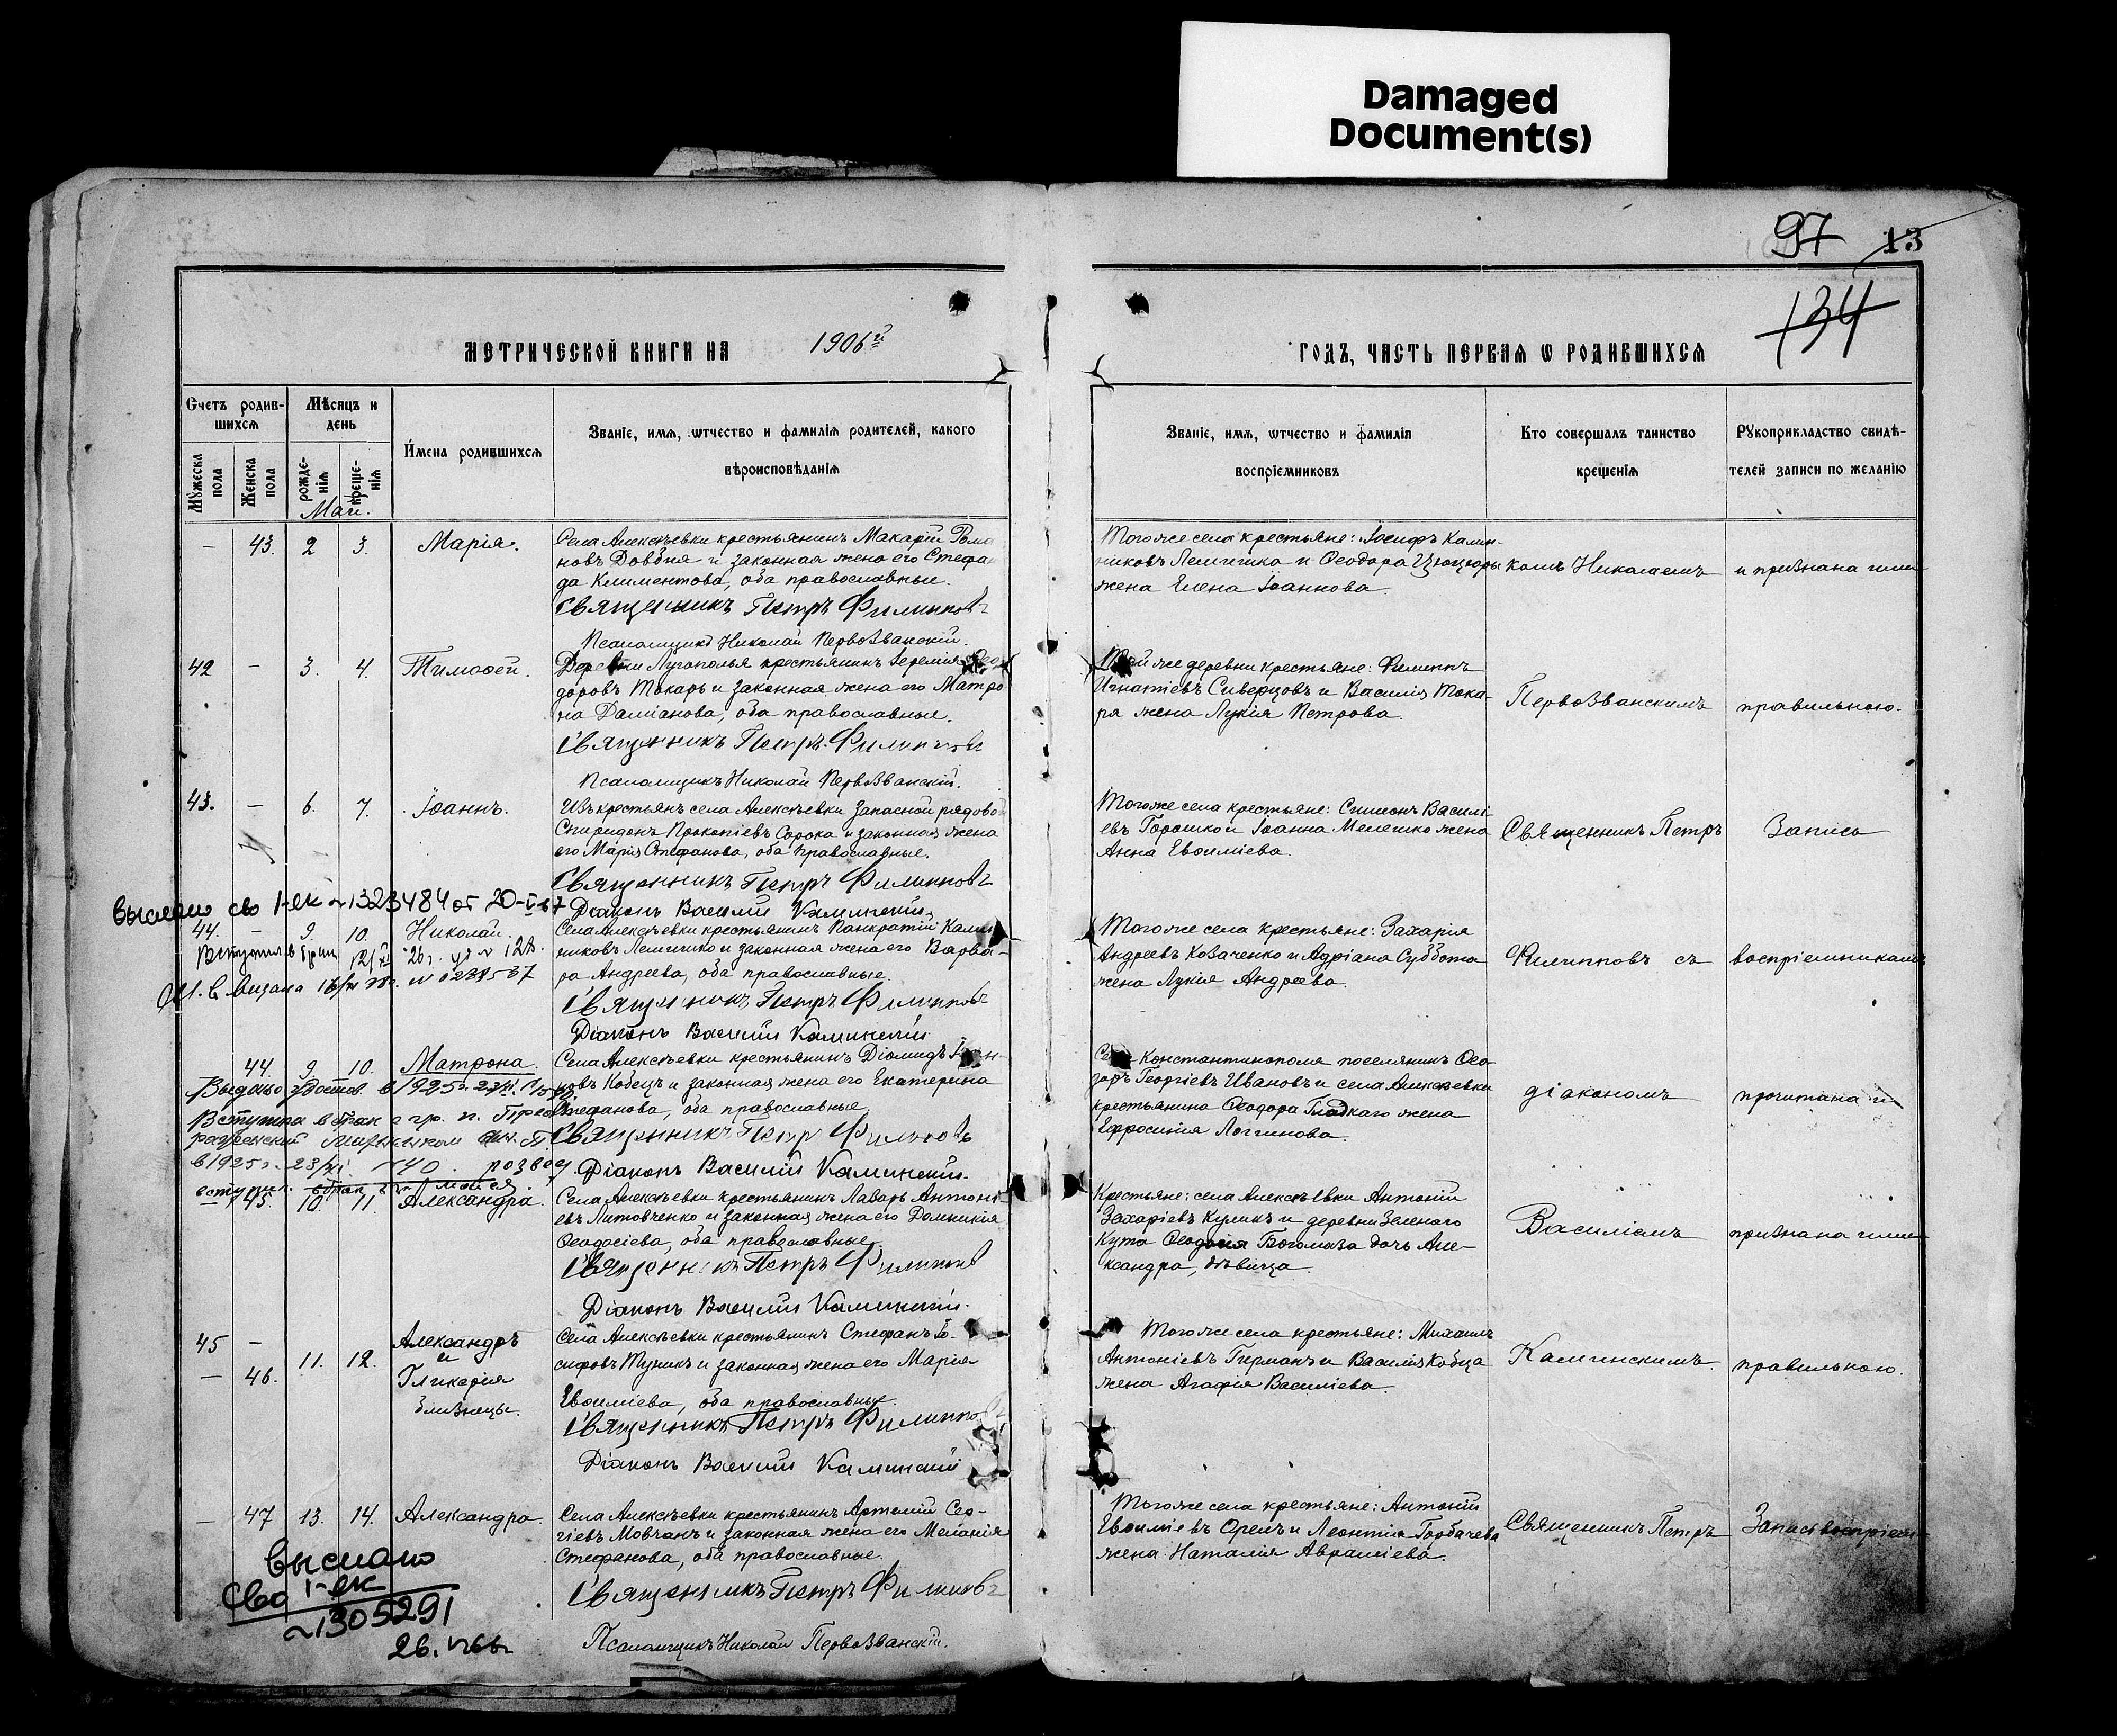 Damaged
Document(s)
97 13
134
МЕТРИЧЕСКОЙ КНИГИ НА 1906й
ГОДЪ, ЧАСТЬ ПЕРВАЯ Ѡ РОДИВШИХСЯ
Счетъ родив-
шихся
Мѣсяцъ и
день
Мужеска
пола
Женска
пола
рожде-
нія
креще-
нія
Имена родившихся
Званіе, имя, ѡтчество и фамилія родителей, какого
вѣроисповѣданія
Званіе, имя, ѡтчество и фамилія
воспріемниковъ
Кто совершалъ таинство
крещенія
Рукоприкладство свидѣ-
телей записи по желанію
Маи.
— 43. 2 3. Марія.
Села Алексѣевки крестьянинъ Макарій Рома
новъ Довбня и законная жена его Стефа
да Климентова, оба православные.
Священникъ Петръ Филипповъ
Псаломщикъ Николай Первозванскій.
Тогоже села крестьяне: Іосифъ Калин-
никовъ Лемишка и Ѳеодора Цюцюры
жена Елена Іоаннова.
комъ Николаемъ
и признана ими
42 — 3. 4. Тимоѳей.
Деревни Лугополья крестьянинъ Іеремія Ѳео
доровъ Токарь и законная жена его Матро
на Даміанова, оба православные.
Священникъ Петръ Филипповъ
Псаломщикъ Николай Первозванскій.
Той же деревни крестьяне: Филиппъ
Игнатіевъ Сиверцовъ и Василія Тока-
ря жена Лукія Петрова.
Первозванскимъ
правильною.
43. — 6. 7. Іоаннъ.
Изъ крестьянъ села Алексѣевки запасной рядовой
Спиридонъ Прокопіевъ Сорока и законная жена
его Марія Стефанова, оба православные.
Священникъ Петръ Филипповъ
Діаконъ Василій Калинскій.
Тогоже села крестьяне: Симеонъ Василі-
евъ Горошко и Іоанна Мелешко жена
Анна Евѳиміева.
Священникъ Петръ
Запись
выслано сво I-ек №1323484 от 20-
44. — 9. 10. Николай.
Села Алексѣевки крестьянинъ Панкратій Калин
никовъ Лемишко и законная жена его Варва-
ра Андреева, оба православные.
Священникъ Петръ Филипповъ
Діаконъ Василій Калинскій.
Тогоже села крестьяне: Захарія
Андреевъ Козаченко и Адріана Суббота
жена Лукія Андреева.
Филипповъ съ
воспріемниками
44. 9. 10. Матрона.
Села Алексѣевки крестьянинъ Діомидъ
новъ Кобецъ и законная жена его Екатерина
Стефанова, оба православные,
Священникъ Петръ Филипповъ
Діаконъ Василій Калинскій.
Села Константинополя поселянинъ Ѳео
доръ Георгіевъ Ивановъ и села Алексѣевки
крестьянина Ѳеодора Гладкаго жена
Ефросинія Логгинова.
діакономъ
прочитана и
Вступила в брак с гр.
в 1925 г. 23/XI №40. розвод
— 45. 10. 11. Александра.
Села Алексѣевки крестьянинъ Лазарь Антоні-
евъ Литовченко и законная жена его Домникія
Ѳеодосіева, оба православные.
Священникъ Петръ Филипповъ
Діаконъ Василій Калинскій.
Крестьяне: села Алексѣевки Антоній
Захаріевъ Куликъ и деревни Зеленаго
Кута Ѳеодосія Богомаза дочь Але-
ксандра, дѣвица.
Василіемъ
признана ими
45 —
— 46. 11. 12.
Александръ
и
Гликерія
близнецы.
Села Алексѣевки крестьянинъ Стефанъ Іо-
сифовъ Тупикъ и законная жена его Марія
Евѳиміева, оба православные.
Священникъ Петръ Филипповъ
Діаконъ Василій Калинскій
Тогоже села крестьяне: Михаилъ
Антоніевъ Гирманъ и Василія Кобца
жена Агафія Василіева.
Калинскимъ.
правильною.
— 47 13. 14. Александра.
Села Алексѣевки крестьянинъ Артемій Сер-
гіевъ Мовчанъ и законная жена его Меланія
Стефанова, оба православные.
Священникъ Петръ Филиповъ
Псаломщикъ Николай Первозванскій.
Тогоже села крестьяне: Антоній
Евѳиміевъ Орелъ и Леонтія Горбачева
жена Наталія Авраміева.
Священникъ Петръ
Запись воспріем-
выслано
сво I-ек
№1305291